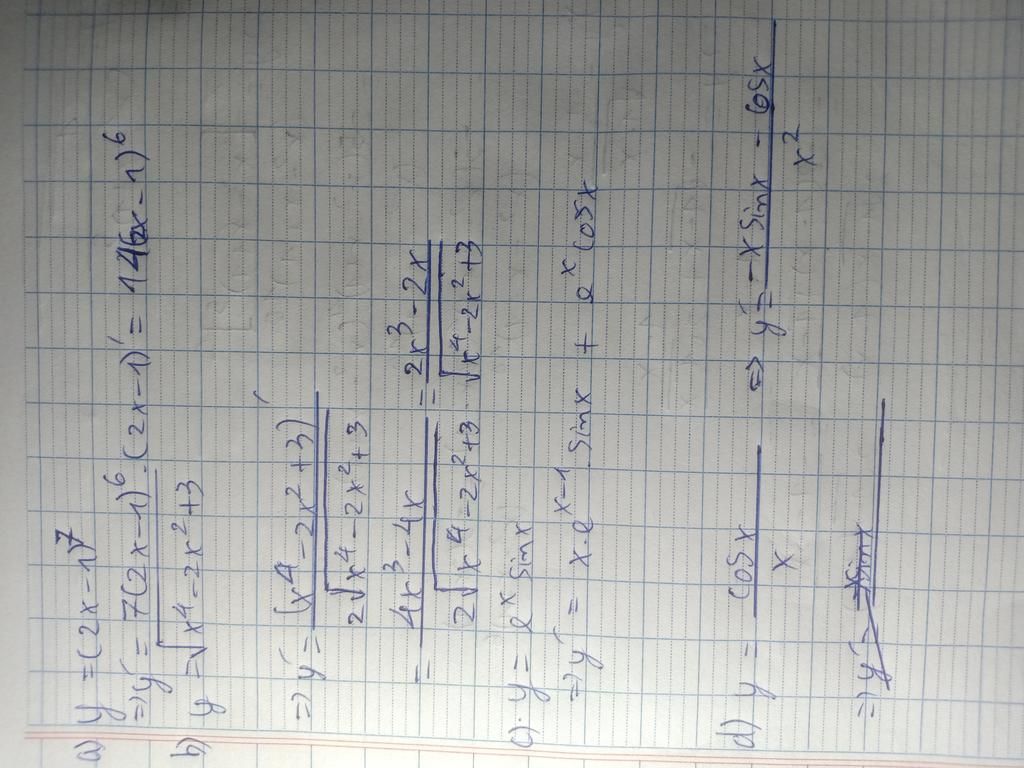 a) y = (2x-1)^7
=> y' = 7(2x-1)^6 . (2x-1)' = 14(2x-1)^6
b) y = √(x^4 - 2x^2 + 3)
=> y' = (x^4 - 2x^2 + 3)' / 2√(x^4 - 2x^2 + 3)
= (4x^3 - 4x) / 2√(x^4 - 2x^2 + 3) = (2x^3 - 2x) / √(x^4 - 2x^2 + 3)
c) y = e^x sinx
=> y' = x e^(x-1) . sinx + e^x cosx
d) y = cosx / x => y' = (-x sinx - cosx) / x^2
=> y' =